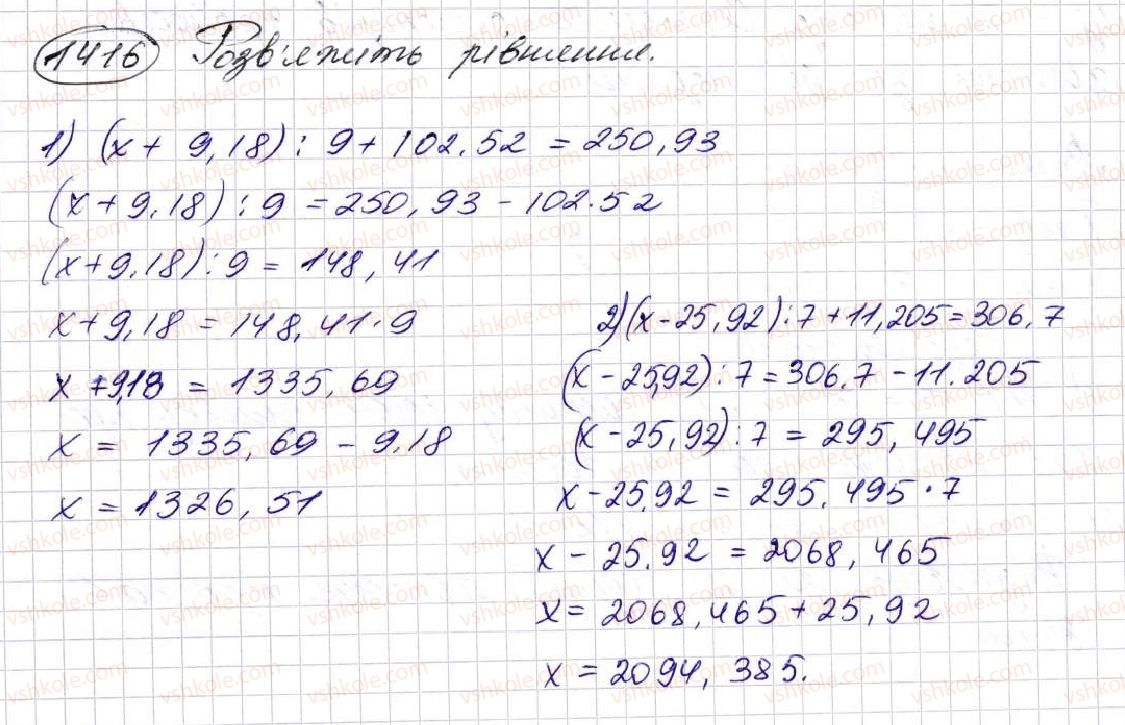 1416 Розв'яжіть рівняння.
1) (x + 9,18) : 9 + 102.52 = 250,93
(x + 9.18) : 9 = 250,93 - 102.52
(x + 9.18) : 9 = 148,41
x + 9,18 = 148,41 · 9
x + 9,18 = 1335,69
x = 1335,69 - 9.18
x = 1326,51
2) (x - 25,92) : 7 + 11,205 = 306.7
(x - 25,92) : 7 = 306.7 - 11.205
(x - 25,92) : 7 = 295,495
x - 25,92 = 295.495 · 7
x - 25.92 = 2068,465
x = 2068,465 + 25,92
x = 2094,385.